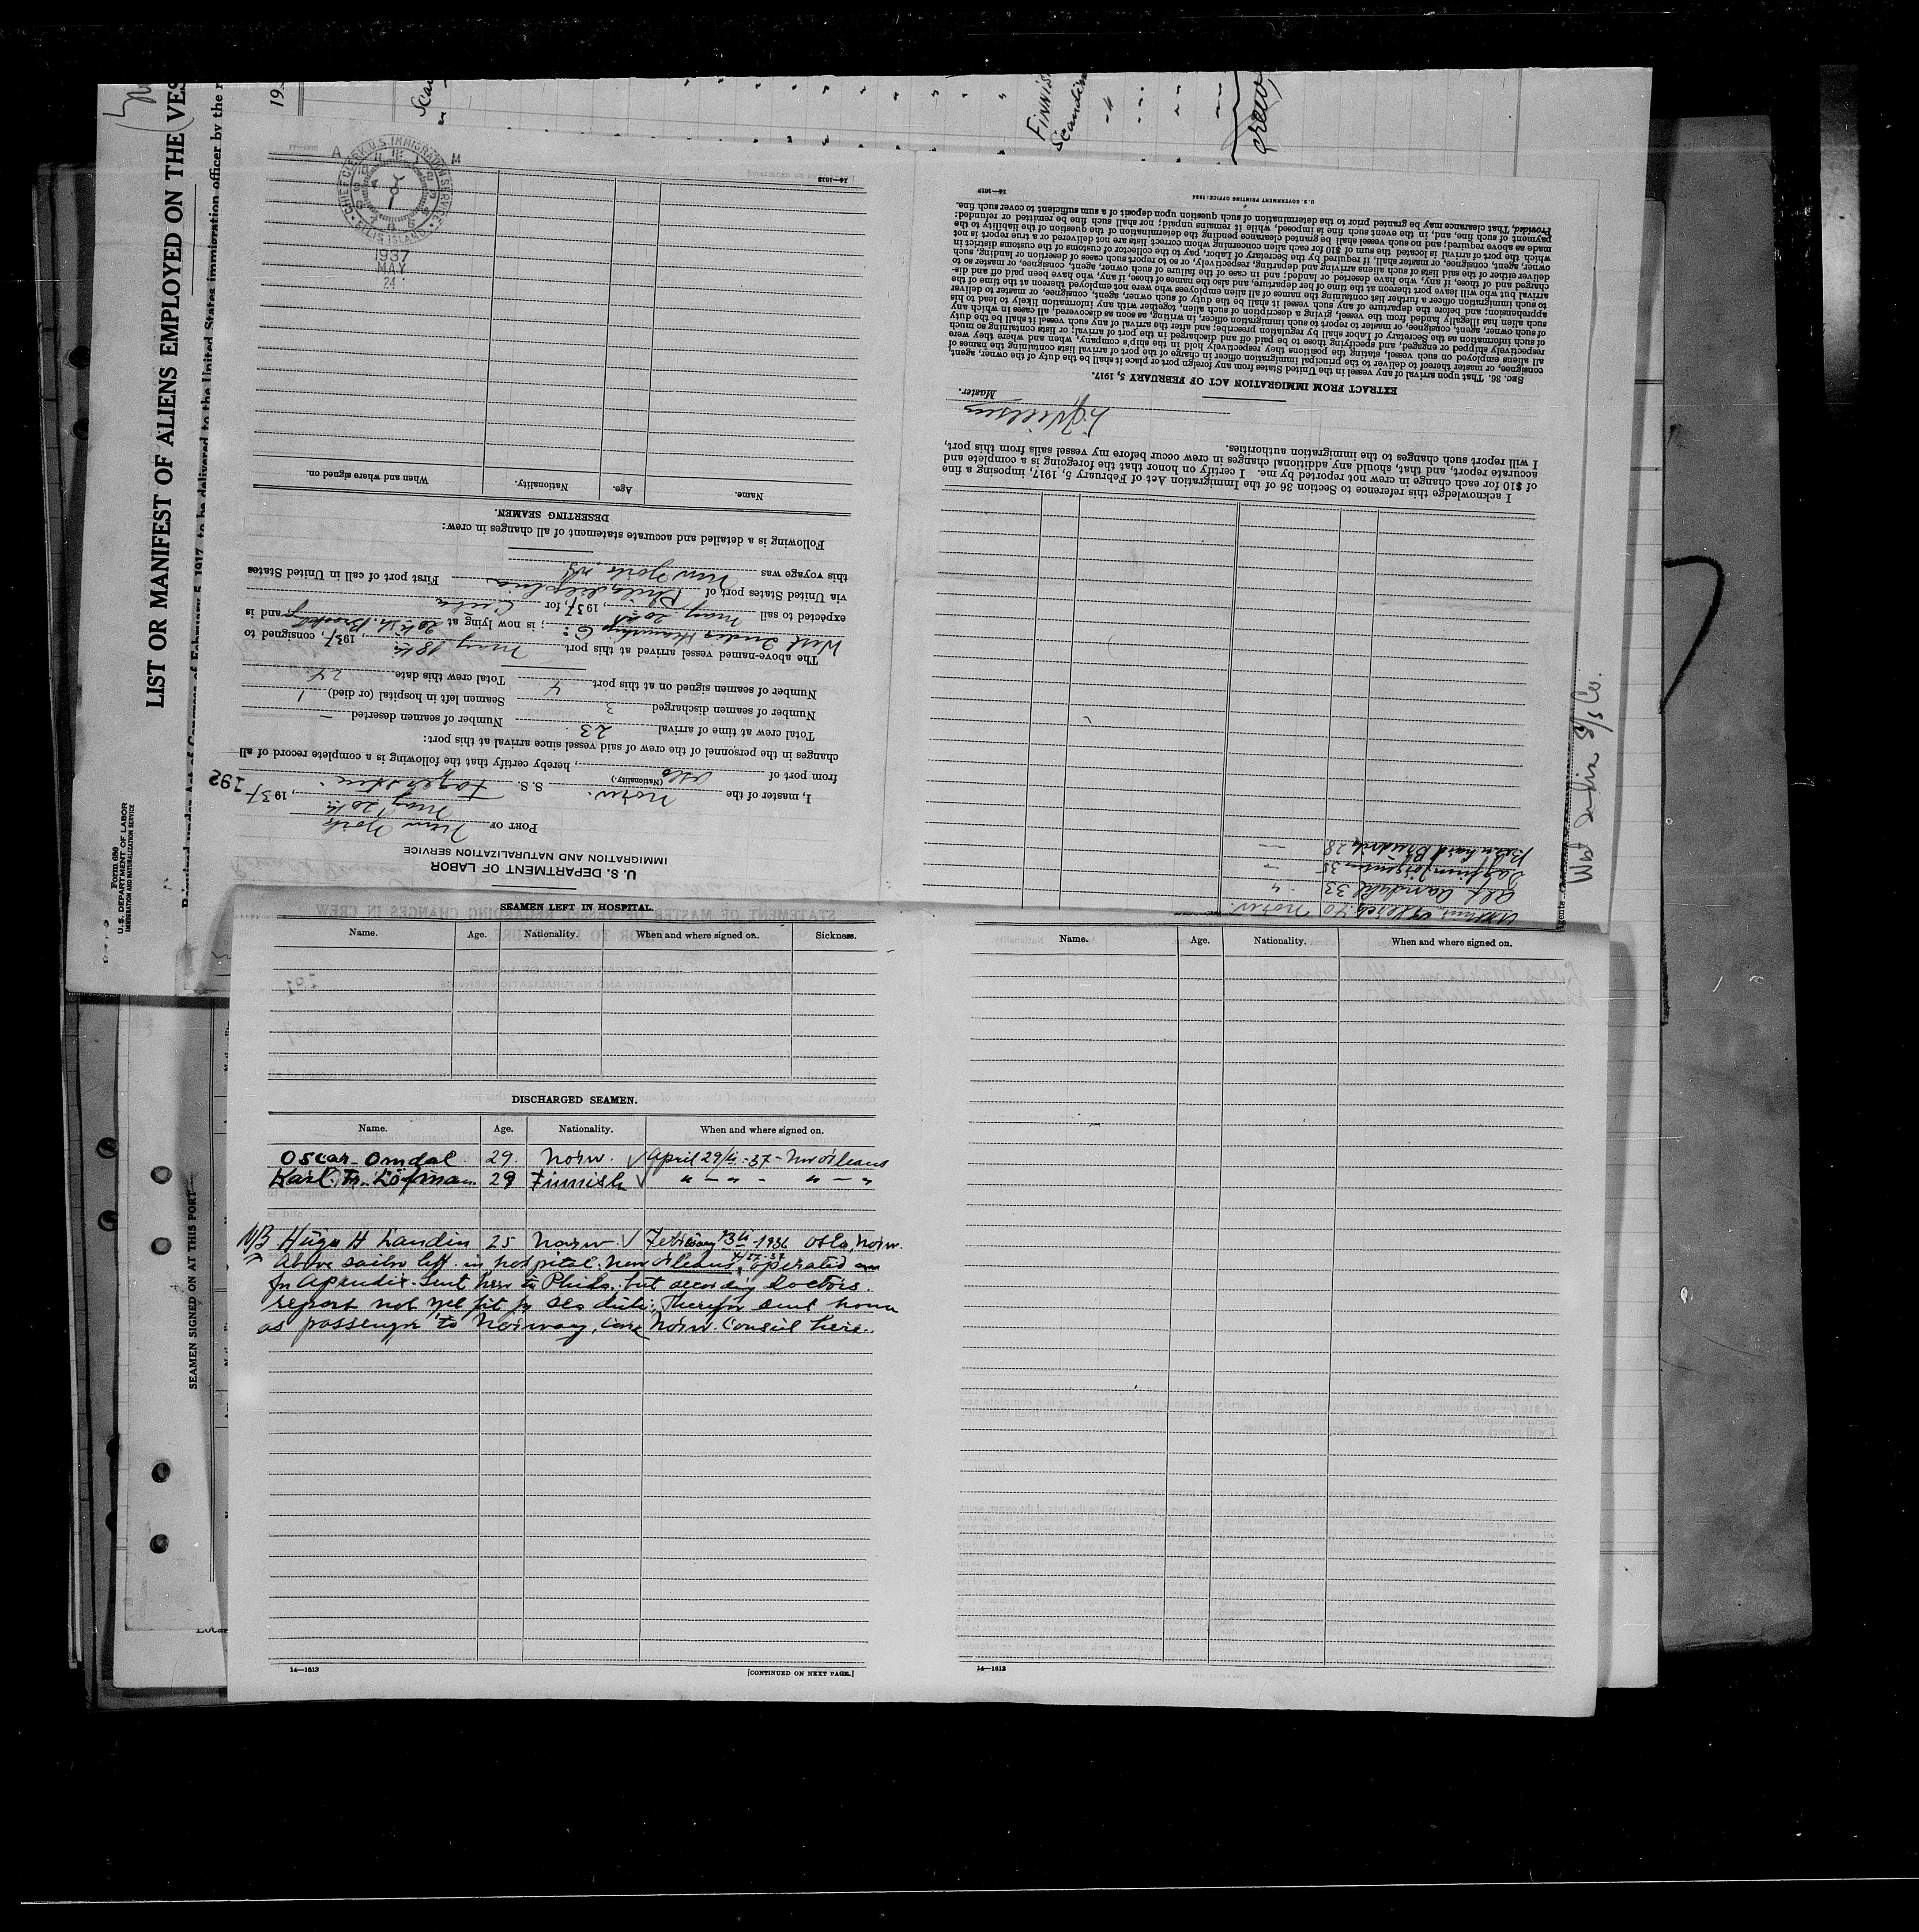 LIST OR MANIFEST OF ALIENS EMPLOYED ON THE VES
Required under Act of Congress of February 5, 1917, to be delivered to the United States immigration officer by the r
Form 680
U.S. DEPARTMENT OF LABOR
IMMIGRATION AND NATURALIZATION SERVICE
FINNISH
Scandin
crew,
West India S/S Co.
SEAMEN SIGNED ON AT THIS PORT
U. S. DEPARTMENT OF LABOR
IMMIGRATION AND NATURALIZATION SERVICE
PORT OF New York
May 20th, 1937
192
I, master of the Norw. S. S.
(Nationality.)
from port of Oslo, hereby certify that the following is a complete record of all
changes in the personnel of the crew of said vessel since arrival at this port:
Total crew at time of arrival 23 Number of seamen deserted —
Number of seamen discharged 3 Seamen left in hospital (or died) 1
Number of seamen signed on at this port 4 Total crew this date 24
The above-named vessel arrived at this port May 18th, 1937, consigned to
West India Steamship Co; is now lying at 20th St. Brooklyn and is
expected to sail May 20th, 1937, for Cuba
via United States port of Philadelphia First port of call in United States
this voyage was New York, NY
Following is a detailed and accurate statement of all changes in crew:
DESERTING SEAMEN.
Name. Age. Nationality. When and where signed on.
14—1613
CHIEF CLERK U.S. IMMIGRATION SERVICE
ELLIS ISLAND
A M
1937
MAY
24
40 Norw.
Alf 33 "
35 —
28 —
I acknowledge this reference to Section 36 of the Immigration Act of February 5, 1917, imposing a fine
of $10 for each change in crew not reported by me. I certify on honor that the foregoing is a complete and
accurate report, and that, should any additional changes in crew occur before my vessel sails from this port,
I will report such changes to the immigration authorities.
Master.
EXTRACT FROM IMMIGRATION ACT OF FEBRUARY 5, 1917.
SEC. 36. That upon arrival of any vessel in the United States from any foreign port or place it shall be the duty of the owner, agent,
consignee, or master thereof to deliver to the principal immigration officer in charge of the port of arrival lists containing the names of
all aliens employed on such vessel, stating the positions they respectively hold in the ship's company, when and where they were
respectively shipped or engaged, and specifying those to be paid off and discharged in the port of arrival; or lists containing so much
of such information as the Secretary of Labor shall by regulation prescribe; and after the arrival of any such vessel it shall be the duty
of such owner, agent, consignee, or master to report to such immigration officer, in writing, as soon as discovered, all cases in which any
such alien has illegally landed from the vessel, giving a description of such alien, together with any information likely to lead to his
apprehension; and before the departure of any such vessel it shall be the duty of such owner, agent, consignee, or master to deliver
to such immigration officer a further list containing the names of all alien employees who were not employed thereon at the time of the
arrival but who will leave port thereon at the time of her departure, and also the names of those, if any, who have been paid off and dis-
charged and of those, if any, who have deserted or landed; and in case of the failure of such owner, agent, consignee, or master so to
deliver either of the said lists of such aliens arriving and departing, respectively, or so to report such cases of desertion or landing, such
owner, agent, consignee, or master, shall, if required by the Secretary of Labor, pay to the collector of customs of the customs district in
which the port of arrival is located the sum of $10 for each alien concerning whom correct lists are not delivered or a true report is not
made as above required; and no such vessel shall be granted clearance pending the determination of the question of the liability to the
payment of such fine, and, in the event such fine is imposed, while it remains unpaid; nor shall such fine be remitted or refunded:
Provided, That clearance may be granted prior to the determination of such question upon deposit of a sum sufficient to cover such fine.
U. S. GOVERNMENT PRINTING OFFICE: 1934
14—1613
SEAMEN LEFT IN HOSPITAL.
Name. Age. Nationality. When and where signed on. Sickness.
DISCHARGED SEAMEN.
Name. Age. Nationality. When and where signed on.
Oscar Omdal 29. Norw. April 29/4 - 37 - New Orleans
Karl. Fr. Löfman 29 Finnish " — " - " — "
NB Hugo H Landin 25 Norw. February 13th 1936 Oslo, Norw.
Above sailor left in hospital New Orleans, operated
for Apendix. Sent here to Phila. but according Doctors
report not yet fit for sea duti; Therefor sent home
as passenger to Norway, care Norw. Consul here.
14—1613
[CONTINUED ON NEXT PAGE.]
Name. Age. Nationality. When and where signed on.
14—1613